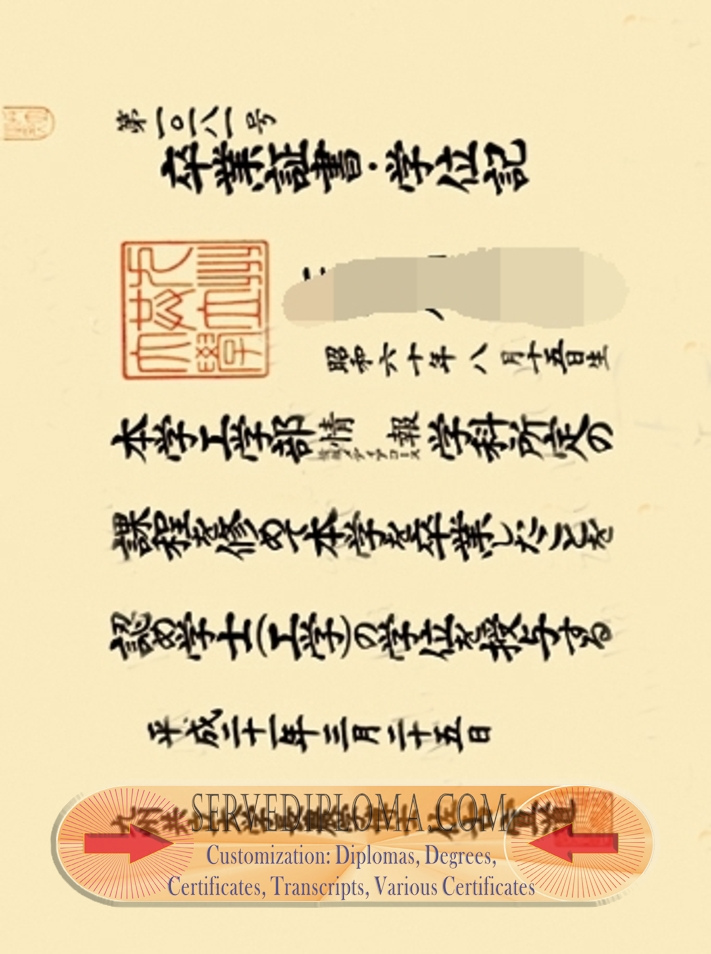 第一〇八一号
卒業証書・学位記
昭和六十年八月十五日生
本学工学部情報学科所定の
メディアコース
課程を修めて本学を卒業したことを
認め学士(工学)の学位を授与する
平成二十一年三月二十五日
九州
SERVEDIPLOMA.COM
Customization: Diplomas, Degrees,
Certificates, Transcripts, Various Certificates